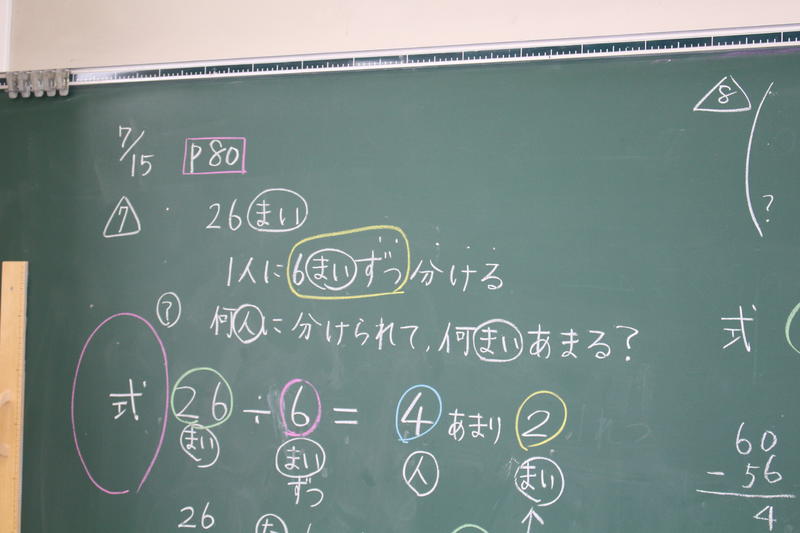 7/15 P80
7 26まい
1人に6まいずつ分ける
? 何人に分けられて、何まいあまる?
式 26÷6=4あまり2
まい まいずつ 人 まい
26
8
?
式
60
-56
4